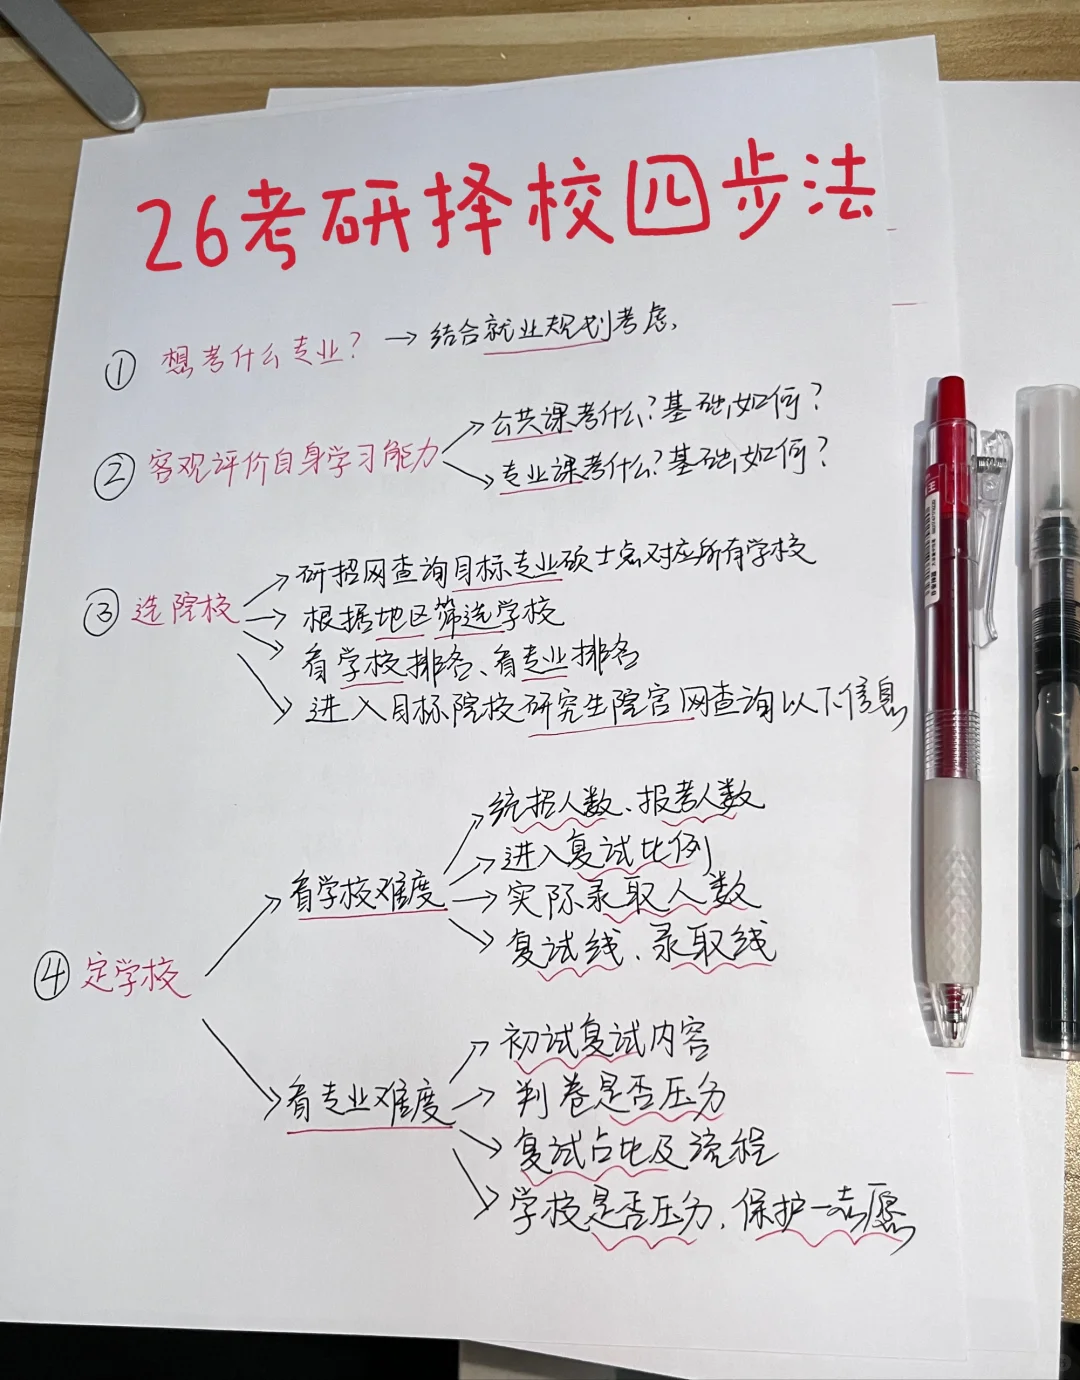 26考研择校四步法
① 想考什么专业? → 结合就业规划考虑,
② 客观评价自身学习能力
公共课考什么?基础如何?
专业课考什么?基础如何?
③ 选院校
研招网查询目标专业硕士点对应所有学校
根据地区筛选学校
看学校排名、看专业排名
进入目标院校研究生院官网查询以下信息
④ 定学校
看学校难度
统招人数、报考人数
进入复试比例
实际录取人数
复试线、录取线
看专业难度
初试复试内容
判卷是否压分
复试占比及流程
学校是否压分,保护一志愿